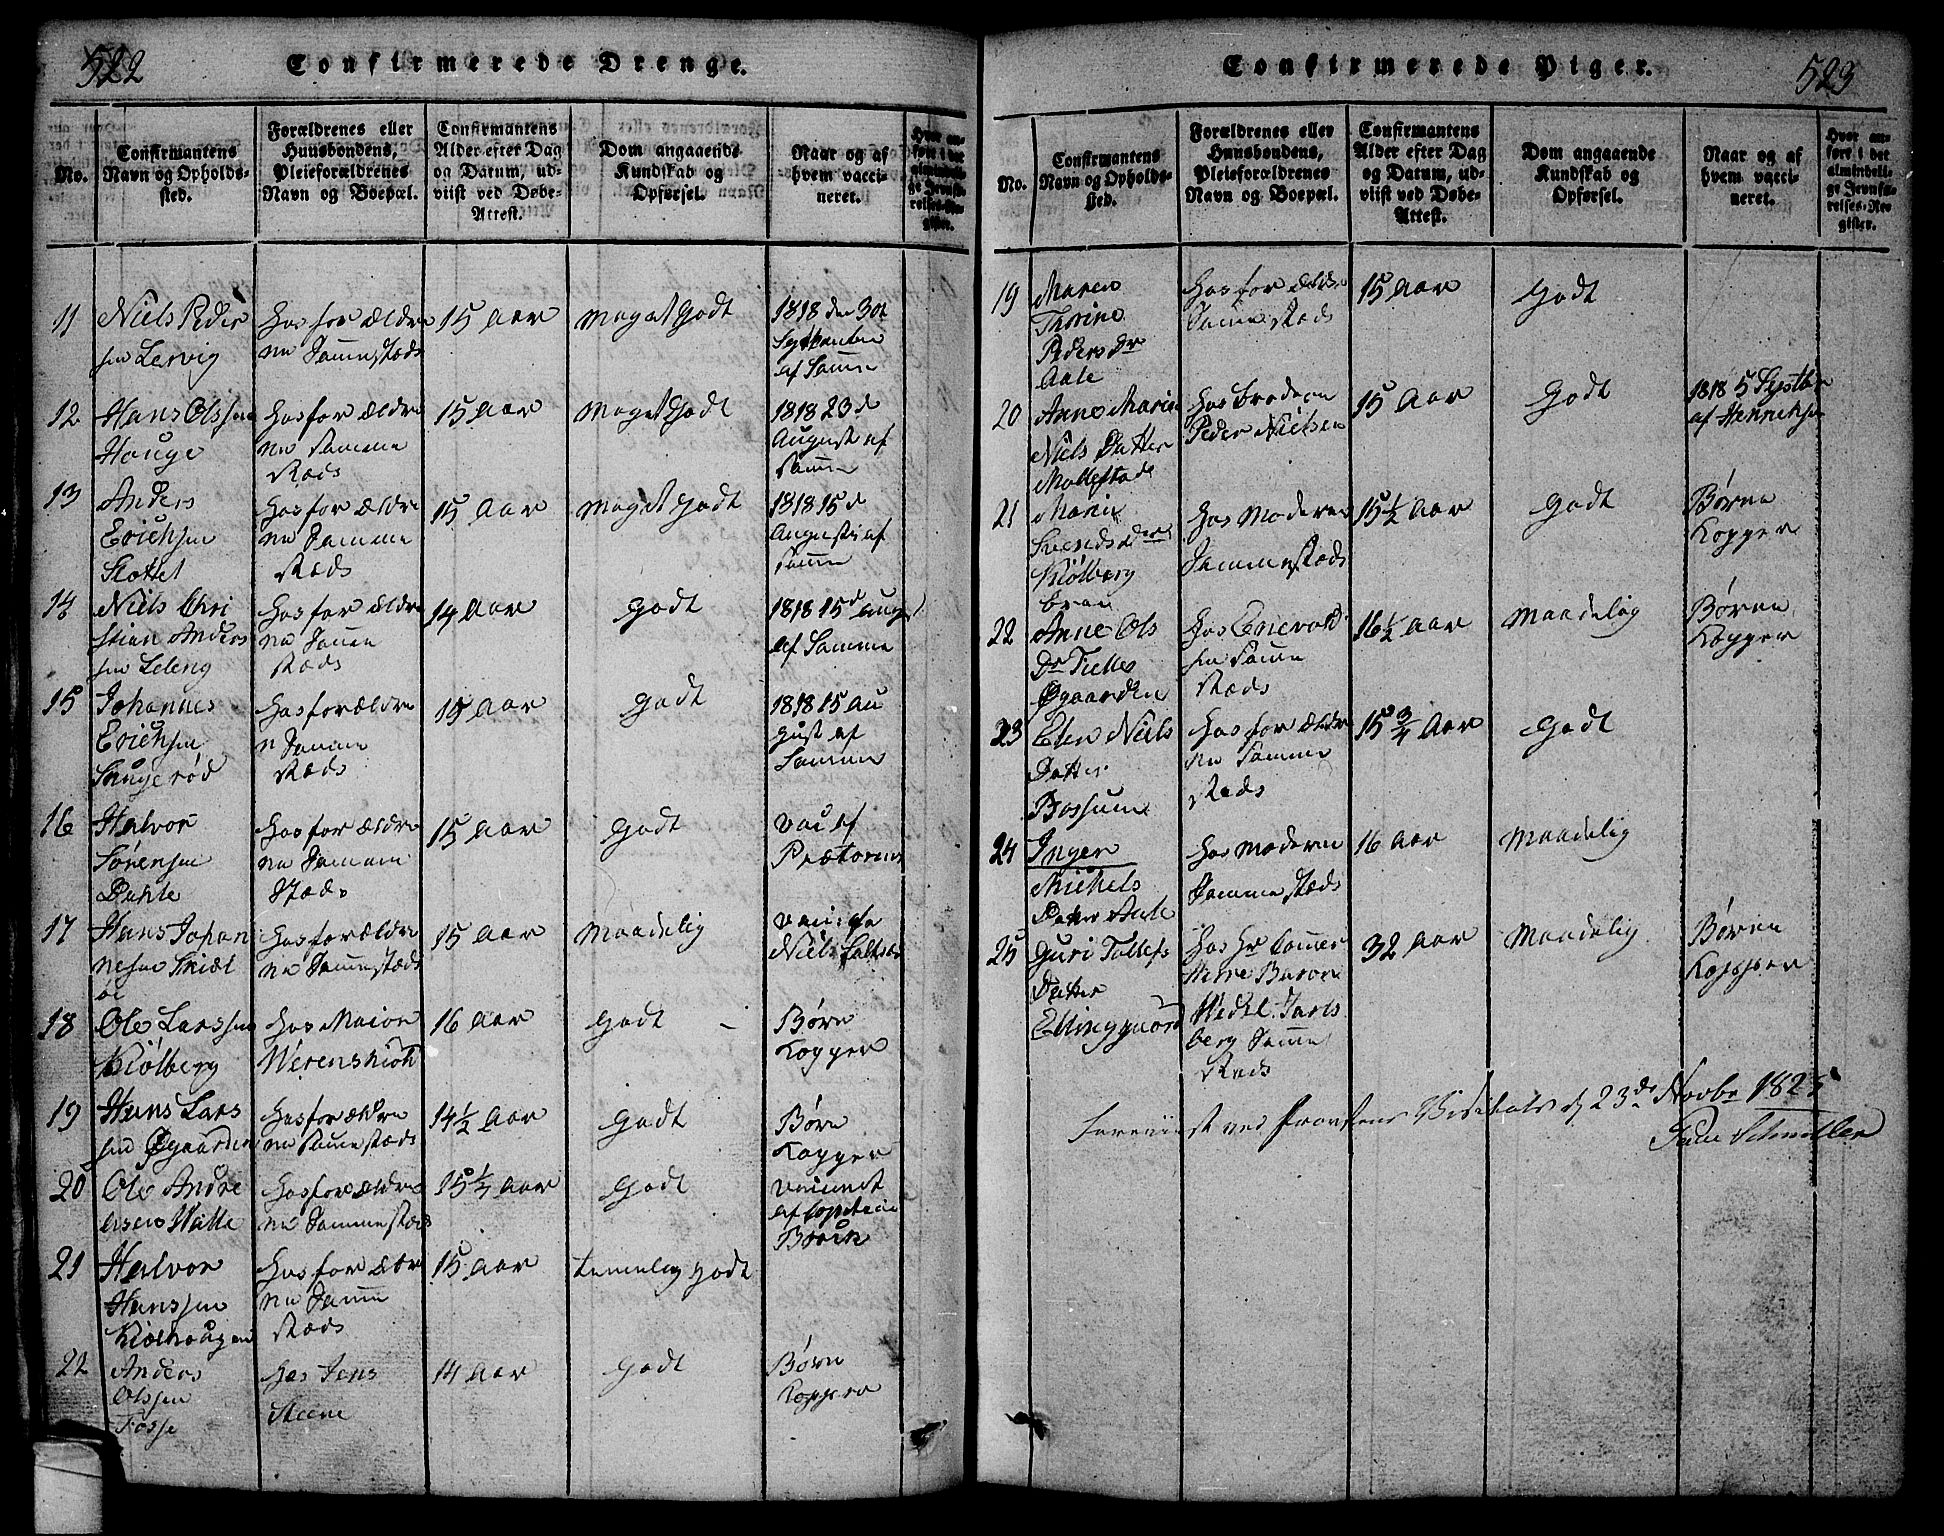 522
Confirmerede Drenge.
No.
Confirmantens
Navn og Opholds-
sted.
Forældrenes eller
Huusbondens,
Pleieforældrenes
Navn og Boepæl.
Confirmantens
Alder efter Dag
og Datum, ud-
viist ved Døbe-
Attest.
Dom angaaende
Kundskab og
Opførsel.
Naar og af
hvem vacci-
neret.
Hvor an-
ført i det
almindeli-
ge Jevnfø-
relses-Re-
gister.
11
Niels Peder
sen Lervig
hos foræld re
ne Sammestæds
15 Aar
Meget Godt
1818 den 30t
af Samme
12
Hans Olssen
Houge
hos forældre
ne samme
stæds
15 Aar
Meget Godt
1818 23 d
August af
samme
13
Anders
Erichsen
Slottet
hos forældre
ne Samme
stæds
15 Aar
Meget Godt
1818 15 d
Augusti af
samme
14
Niels Chri
stian Anders
sen Leleng
hos forældre
ne Samme
stæds
14 Aar
Godt
1818 15d Augst
af Samme
15
Johannes
Erichsen
hos forældre
n Samme
stæds
15 Aar
Godt
1818 15 Au
gust af
Samme
16
Halvor
Sørensen
Dahle
hos forældre
ne Samme
Stæds
15 Aar
Godt
vac af
Prætorius
17
Hans Johan
nesen Skiæl
øe
hos forældre
ne Sammestæds
15 Aar
Maadelig
Niels
18
Ole Larssen
Kiølberg
hos Maior
Werenskiold
16 Aar
Godt
Børne
Kopper
19
Hans Lars
sen Øgaarden
hos forældre
ne Sammestæds
14 1/2 Aar
Godt
Børne
Kopper
20
Ole Andre
asen Walle
hos forældre
ne Sammestæds
15 1/4 Aar
Godt
vaccineret
af
21
Halvor
Hanssen
Kiølhougen
hos forældre
ne Samme
stæds
15 Aar
temmelig Godt
22
Anders
Olssen
Fosse
hos Jens
Steene
14 Aar
Godt
Børne
Kopper
523
Confirmerede Piger.
No.
Confirmantens
Navn og Opholds-
sted.
Forældrenes eller
Huusbondens,
Pleieforældrenes
Navn og Boepæl.
Confirmantens
Alder efter Dag
og Datum, ud-
viist ved Døbe-
Attest.
Dom angaaende
Kundskab og
Opførsel.
Naar og af
hvem vacci-
neret.
Hvor an-
ført i det
almindeli-
ge Jevnfø-
relses-Re-
gister.
19
Maren
Thorine
Peders Dr
Aale
hos foræld re
Samme stæds
15 Aar
Godt
20
Anne Marie
Niels Datter
Mallestade
hos broderen
Peder Nielsen
15 Aar
Godt
1818 5 Septbr
af Hennichsen
21
Marie
Svends dr
Kiølberg
hos Moderen
Sammestæds
15 1/2 Aar
Godt
Børne
Kopper
22
Anne Ols
Dr
Øgaarden
hos Enevold
sen Samme
stæds
16 1/2 Aar
Maadelig
Børne
Kopper
23
Elen Niels
Datter
Bossum
hos forældre
ne Samme
Stæds
15 3/4 Aar
Godt
24
Inger
Michels
Datter Aale
hos Moderen
Samme stæds
16 Aar
Maadelig
25
Guri Tollefs
Datter
Ellinggaard
hos Hr Camer
herre Baron
Wedel Jarls
berg Samme
Stæds
32 Aar
Maadelig
Børne
Kopper
Foreviist ved Provstens Visitats d 23de Novbr 1825